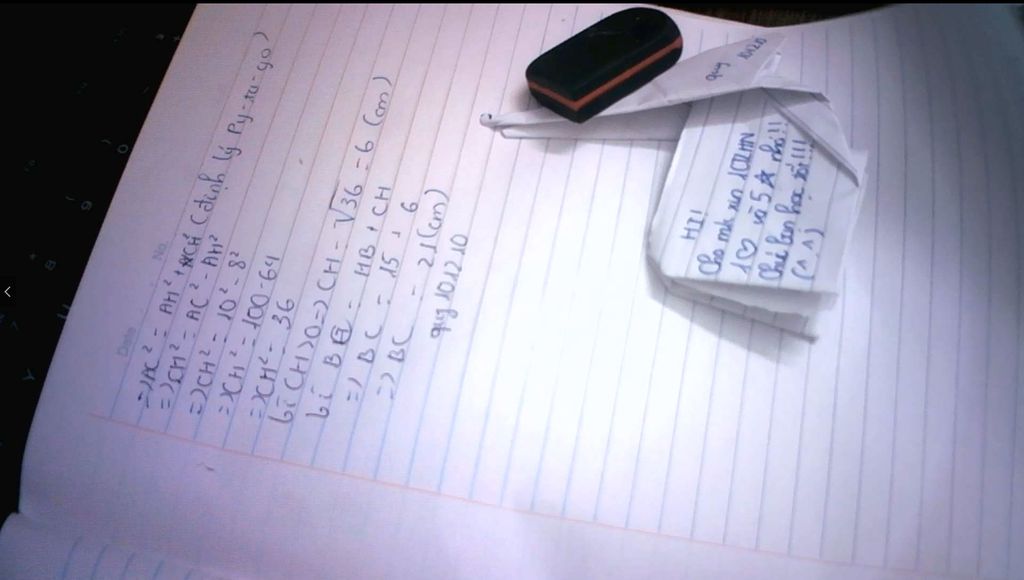 Date No.
=> AC² = AH² + CH² (định lý Py-ta-go)
=> CH² = AC² - AH²
=> CH² = 10² - 8²
=> CH² = 100 - 64
=> CH² = 36
bì CH > 0 => CH = √36 = 6 (cm)
bì BC = HB + CH
=> BC = 15 + 6
=> BC = 21 (cm)
quy 101210
quy 101210
HI!
Cho mk xin 1CTLHN
1♡ và 5☆ nhé!!
(^^)